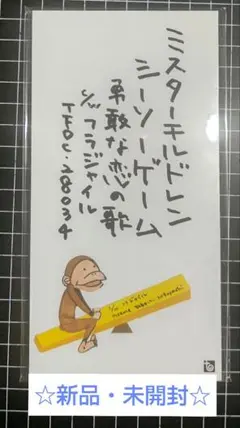 ミスターチルドレン
シーソーゲーム
勇敢な恋の歌
c/w フラジャイル
TFDC-28034
☆新品・未開封☆